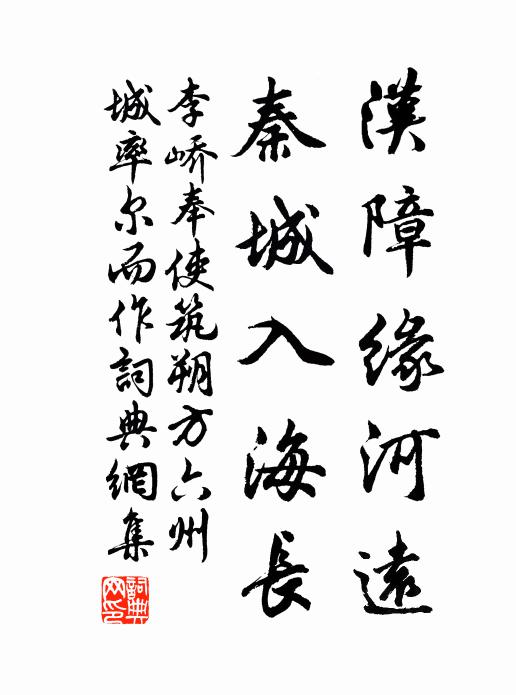 漢障緣河遠
秦城入海長
李嶠奉使筑朔方六州
城率尔而作詞典網集
詞典網印